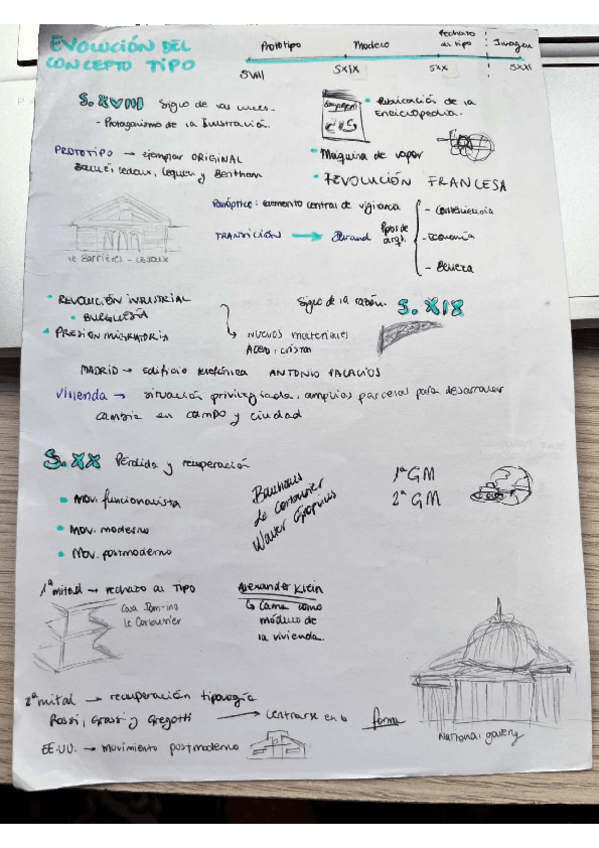 EVOLUCIÓN DEL
CONCEPTO TIPO
Prototipo
Modelo
Rechazo
al tipo
Imagen
SVIII
SXIX
SXX
SXXI
S.XVIII Siglo de las luces.
- Protagonismo de la Ilustración.
• Publicación de la
Enciclopedia.
PROTOTIPO → ejemplar ORIGINAL
Ledoux, Lequeu y Bentham
• Máquina de vapor
• REVOLUCIÓN FRANCESA
Panóptico: elemento central de vigilancia
TRANSICIÓN → Durand tipos de
arq.
- Conveniencia
- Economía
- Belleza
le Barrières - LEDOUX
• REVOLUCIÓN INDUSTRIAL
• BURGUESÍA
• PRESIÓN MIGRATORIA
Siglo de la razón. S. XIX
↳ NUEVOS materiales
ACERO, CRISTAL
MADRID → Edificio telefónica ANTONIO PALACIOS
Vivienda → situación privilegiada, amplias parcelas para desarrollar
cambia en campo y ciudad
S.XX Pérdida y recuperación
• Mov. funcionalista
• Mov. moderno
• Mov. postmoderno
Bauhaus
Le Corbusier
Walter Gropius
1ª GM
2ª GM
1ª mitad → rechazo al TIPO
Casa Dom-ino
le Corbusier
Alexander Klein
↳ Cama como
módulo de
la vivienda.
2ª mitad → recuperación tipología
Rossi, Grassi y Gregotti → Centrarse en la forma
EE.UU. → movimiento postmoderno
National gallery